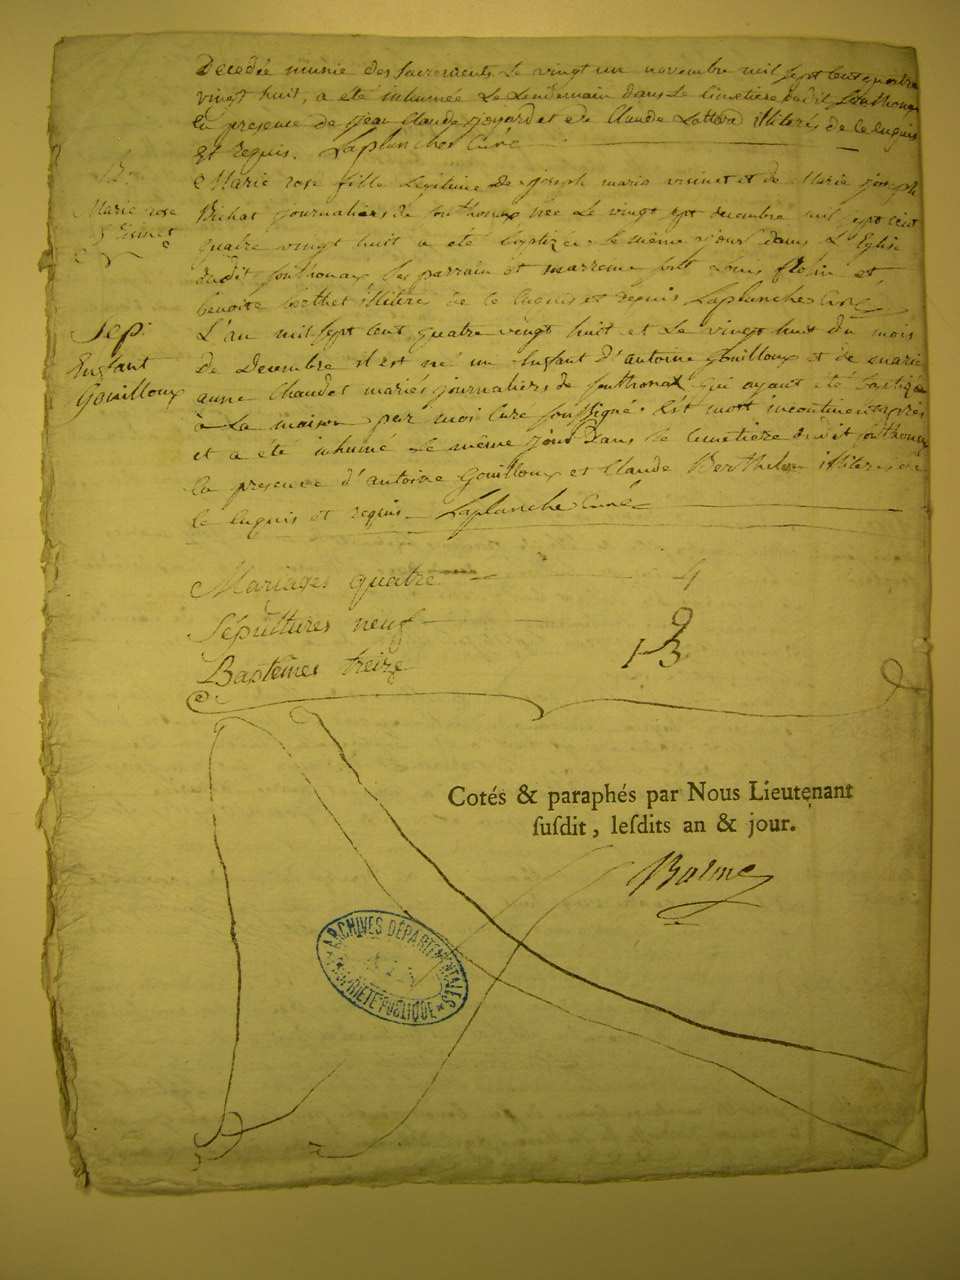 Decedée munie des sacrements le vingt un novembre mil sept cent quatre
vingt huit, a été inhumée le lendemain dans le cimetiere dudit Southonax
en presence de jean Claude joyard et de Claude illiterés de ce enquis
et requis. Laplanche Curé
B.
Marie rose
Marie rose fille legitime de joseph marie visinet et de Marie joseph
Bichat journaliers de southonax née le vingt sept decembre mil sept cent
quatre vingt huit a été baptizée le même jour dans L'Eglise
dudit southonax les parrain et marreine sont Louis et
benoite berthet illiteré de ce enquis et requis Laplanche Curé
Sep.
Enfant
Gouilloux
L'an mil sept cent quatre vingt huit et le vingt huit du mois
De Decembre il est né un Enfant d'antoine Gouilloux et de marie
anne Chaudet mariés journaliers de southonax qui ayant été baptizé
à La maison par moi Curé soussigné est mort incontinent après
et a été inhumé le même jour dans le cimetière dudit southonax
en presence d'antoine Gouilloux et Claude Berthelon illiterés de
ce enquis et requis Laplanche Curé
Mariages quatre 4
Sépultures neuf 9
Baptêmes treize 13
Cotés & paraphés par Nous Lieutenant
ſuſdit, leſdits an & jour.
Balme
ARCHIVES DÉPARTEMENTALES
AIN
PROPRIÉTÉ PUBLIQUE